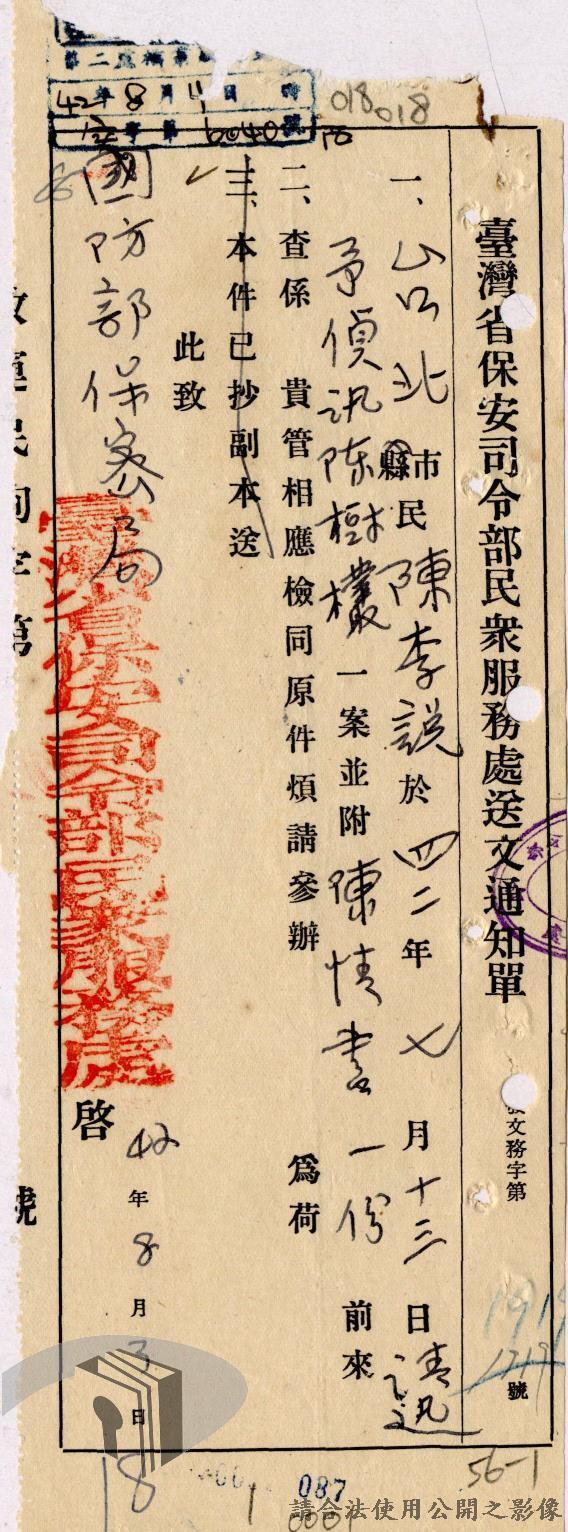 臺灣省保安司令部民衆服務處送文通知單
發文務字第 號
一、台北 縣市民 陳李說 於 四二 年 七 月 十三 日 請迅
予偵訊陳樹欉 一案並附 陳情書 一份 前來
二、查係 貴管相應檢同原件煩請參辦 為荷
三、本件已抄副本送
此致
國防部保密局
臺灣省保安司令部民衆服務處
啓
42 年 8 月 3 日
42 年 8 月 日 時
字 第 6040 號
018 018
56-1
18
087
請合法使用公開之影像